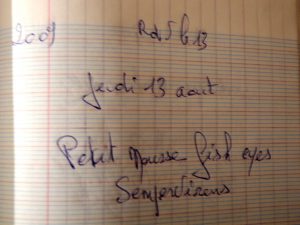 2009
Jeudi 13 aout
Petit Mousse fish eyes
Sempervirens